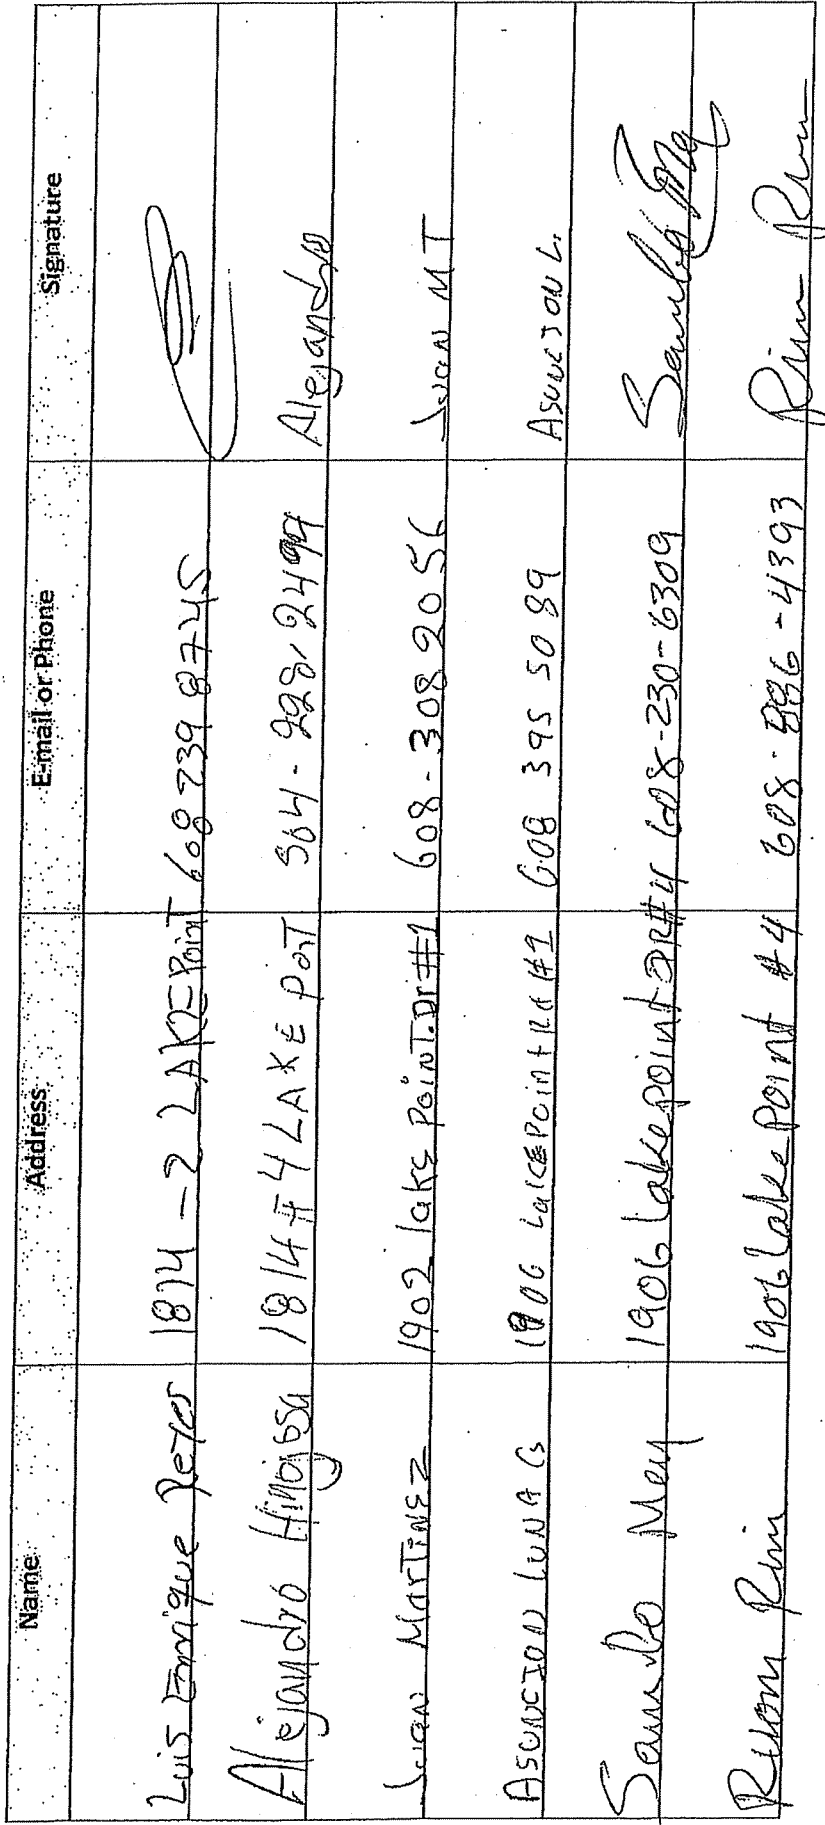 Name Address E-mail or Phone Signature
Luis Enrique Reyes 1814-2 LAKE Point 608 239 8745
Alejandro Hinojosa 1814 #4 LAKE PoinT 564-228-2499 Alejandro
Juan MarTiNEZ 1902 lake PoinT.Dr #1 608-308 2056 Juan MT
ASUNCION LUNA G 1906 LaKEPoint Rd #1 608 395 5089 ASUNCION L.
Sambo Mey 1906 Lakepoint DR #4 608-230-6309 Sambo Mey
1906 Lake Point #4 608-886-4393